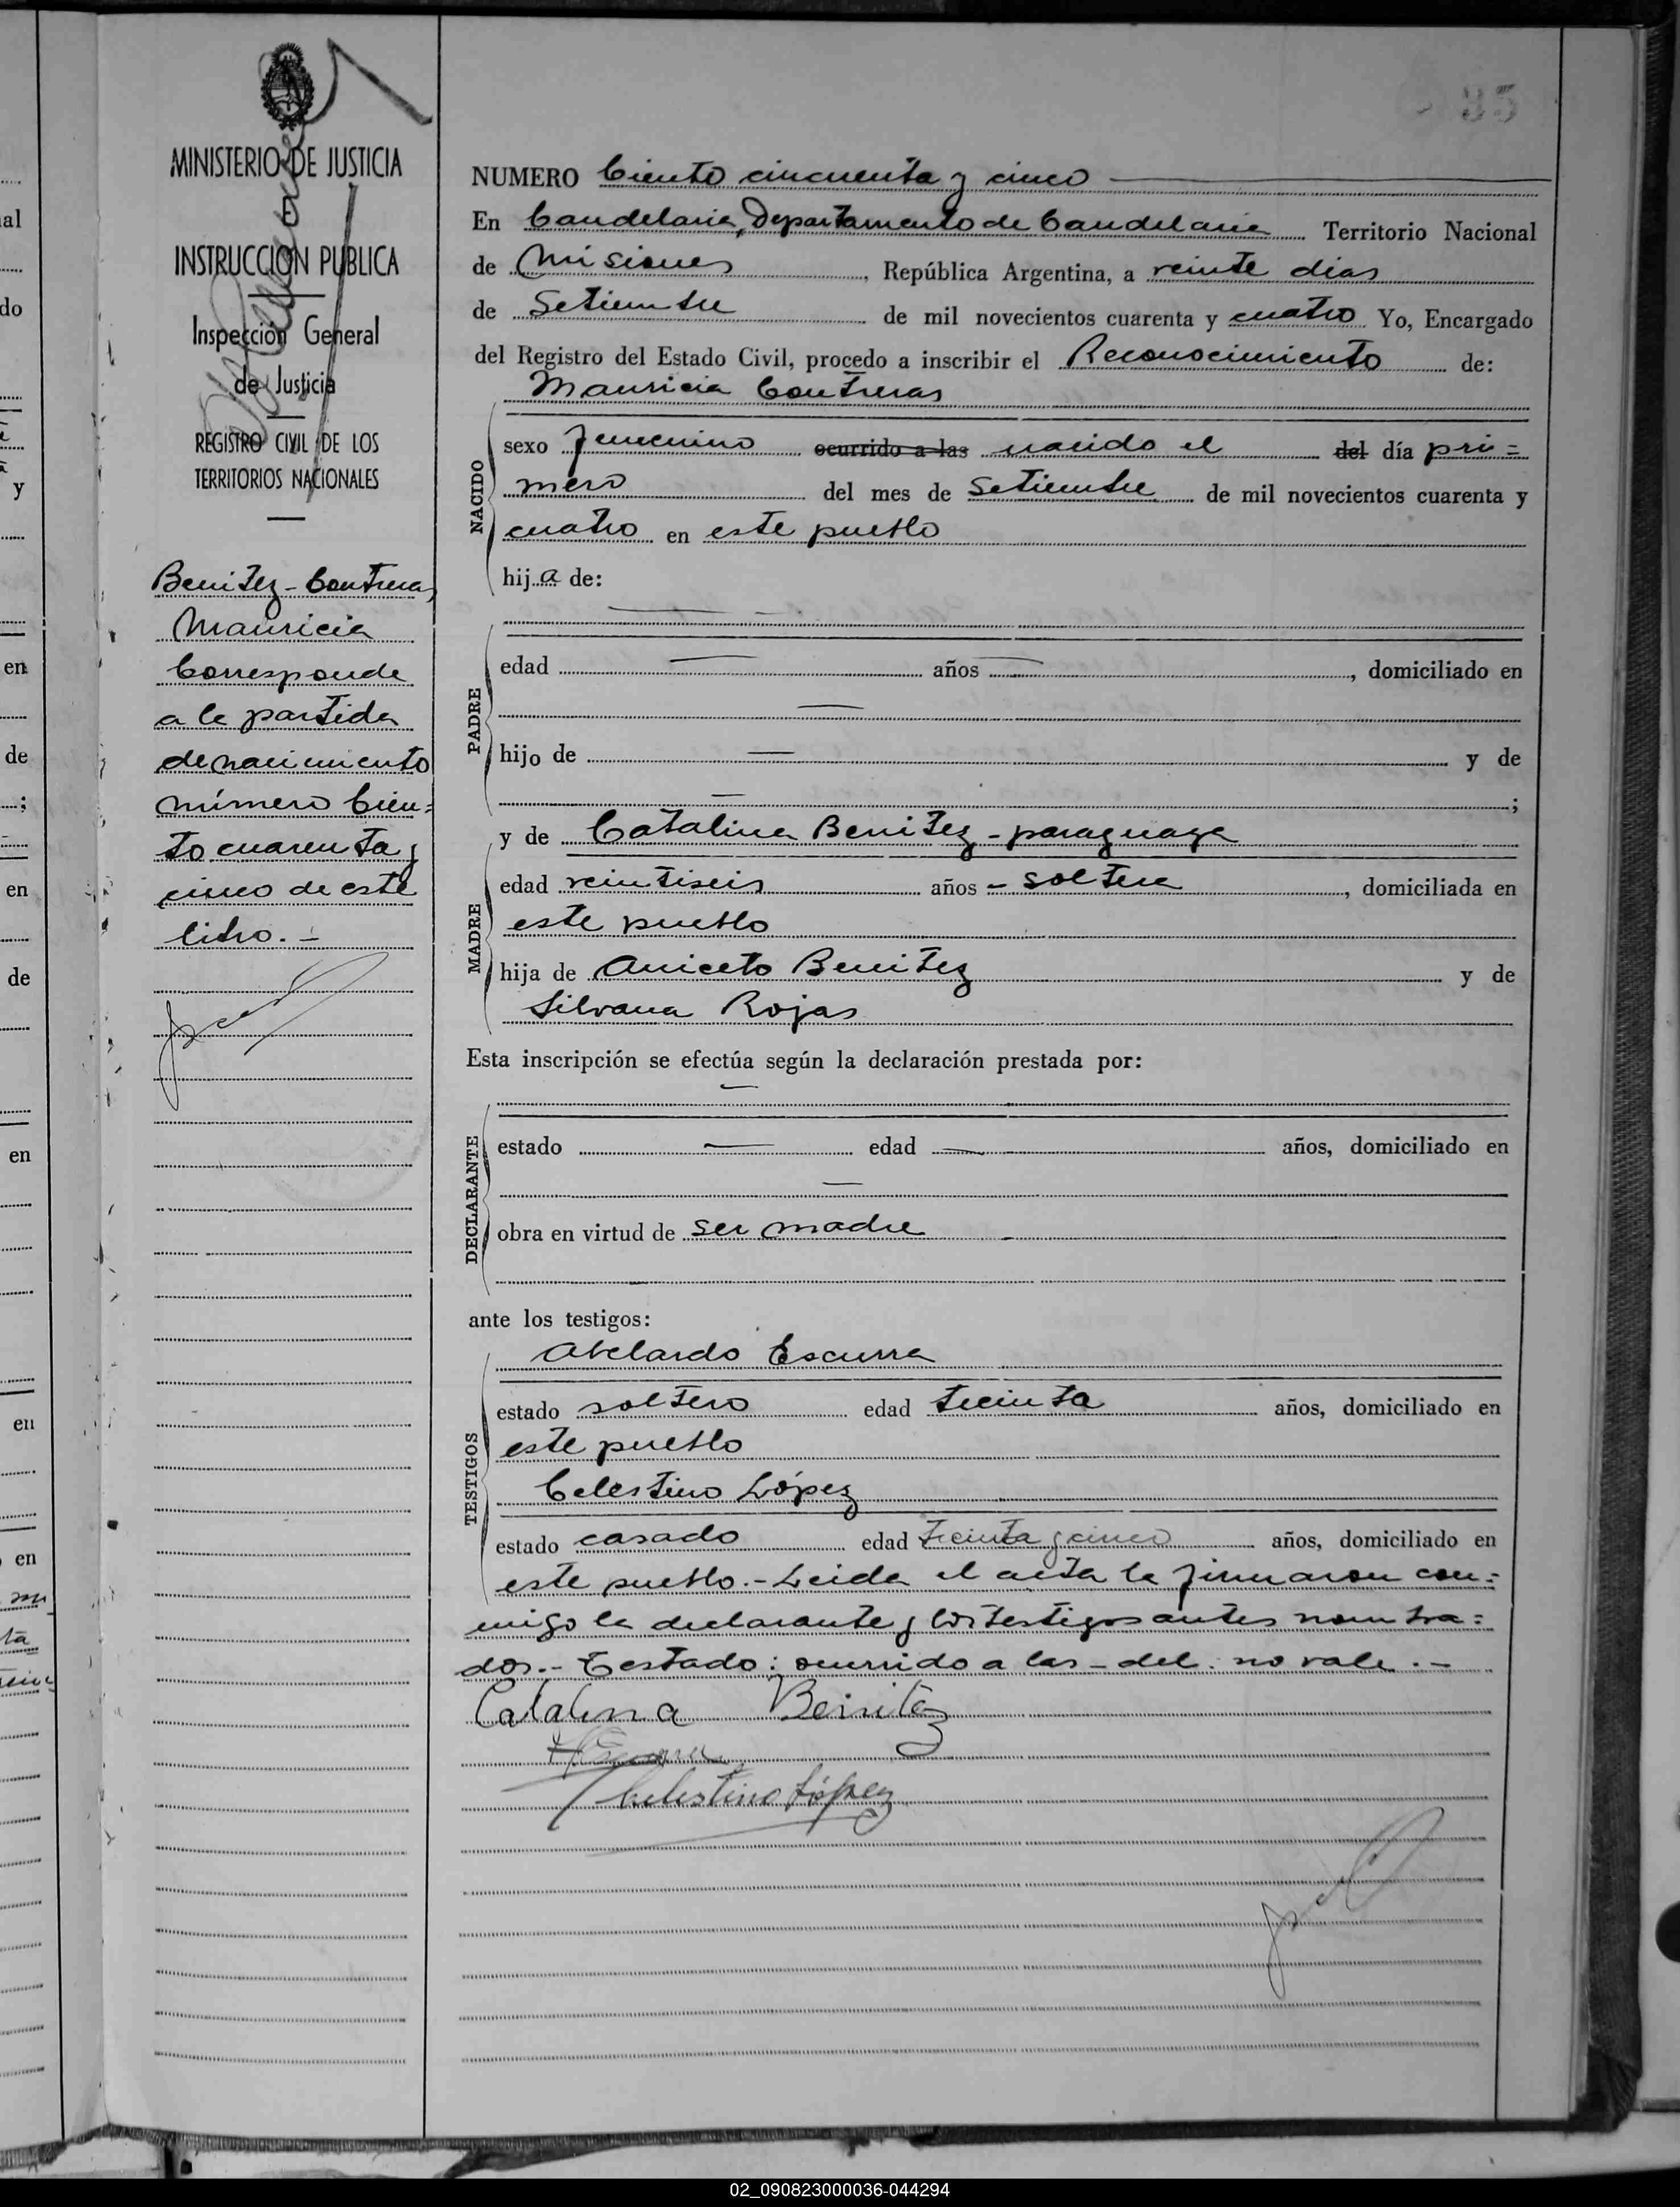 MINISTERIO DE JUSTICIA
E
INSTRUCCIÓN PÚBLICA
Inspección General
de Justicia
REGISTRO CIVIL DE LOS
TERRITORIOS NACIONALES
Benitez-Contreras
Mauricia
Corresponde
a la partida
de nacimiento
número Cien=
to cuarenta y
cinco de este
libro.-
NUMERO Ciento cincuenta y cinco
En Candelaria, Departamento de Candelaria Territorio Nacional
de Misiones, República Argentina, a veinte dias
de Setiembre de mil novecientos cuarenta y cuatro Yo, Encargado
del Registro del Estado Civil, procedo a inscribir el Reconocimiento de:
Mauricia Contreras
NACIDO
sexo femenino ocurrido a las nacido el del día pri=
mero del mes de Setiembre de mil novecientos cuarenta y
cuatro en este pueblo
hija de:
PADRE
edad años, domiciliado en
hijo de y de
;
MADRE
y de Catalina Benitez - paraguaya
edad veintiseis años - soltera, domiciliada en
este pueblo
hija de Aniceto Benitez y de
Silvana Rojas
Esta inscripción se efectúa según la declaración prestada por:
DECLARANTE
estado edad años, domiciliado en
obra en virtud de ser madre
ante los testigos:
TESTIGOS
Abelardo Escurra
estado soltero edad treinta años, domiciliado en
este pueblo
Celestino López
estado casado edad treinta y cinco años, domiciliado en
este pueblo.- Leida el acta la firmaron con=
migo la declarante y los testigos antes nombra=
dos.- Testado: ocurrido a las - del: no vale.-
Catalina Benitez
Celestino López
02_090823000036-044294